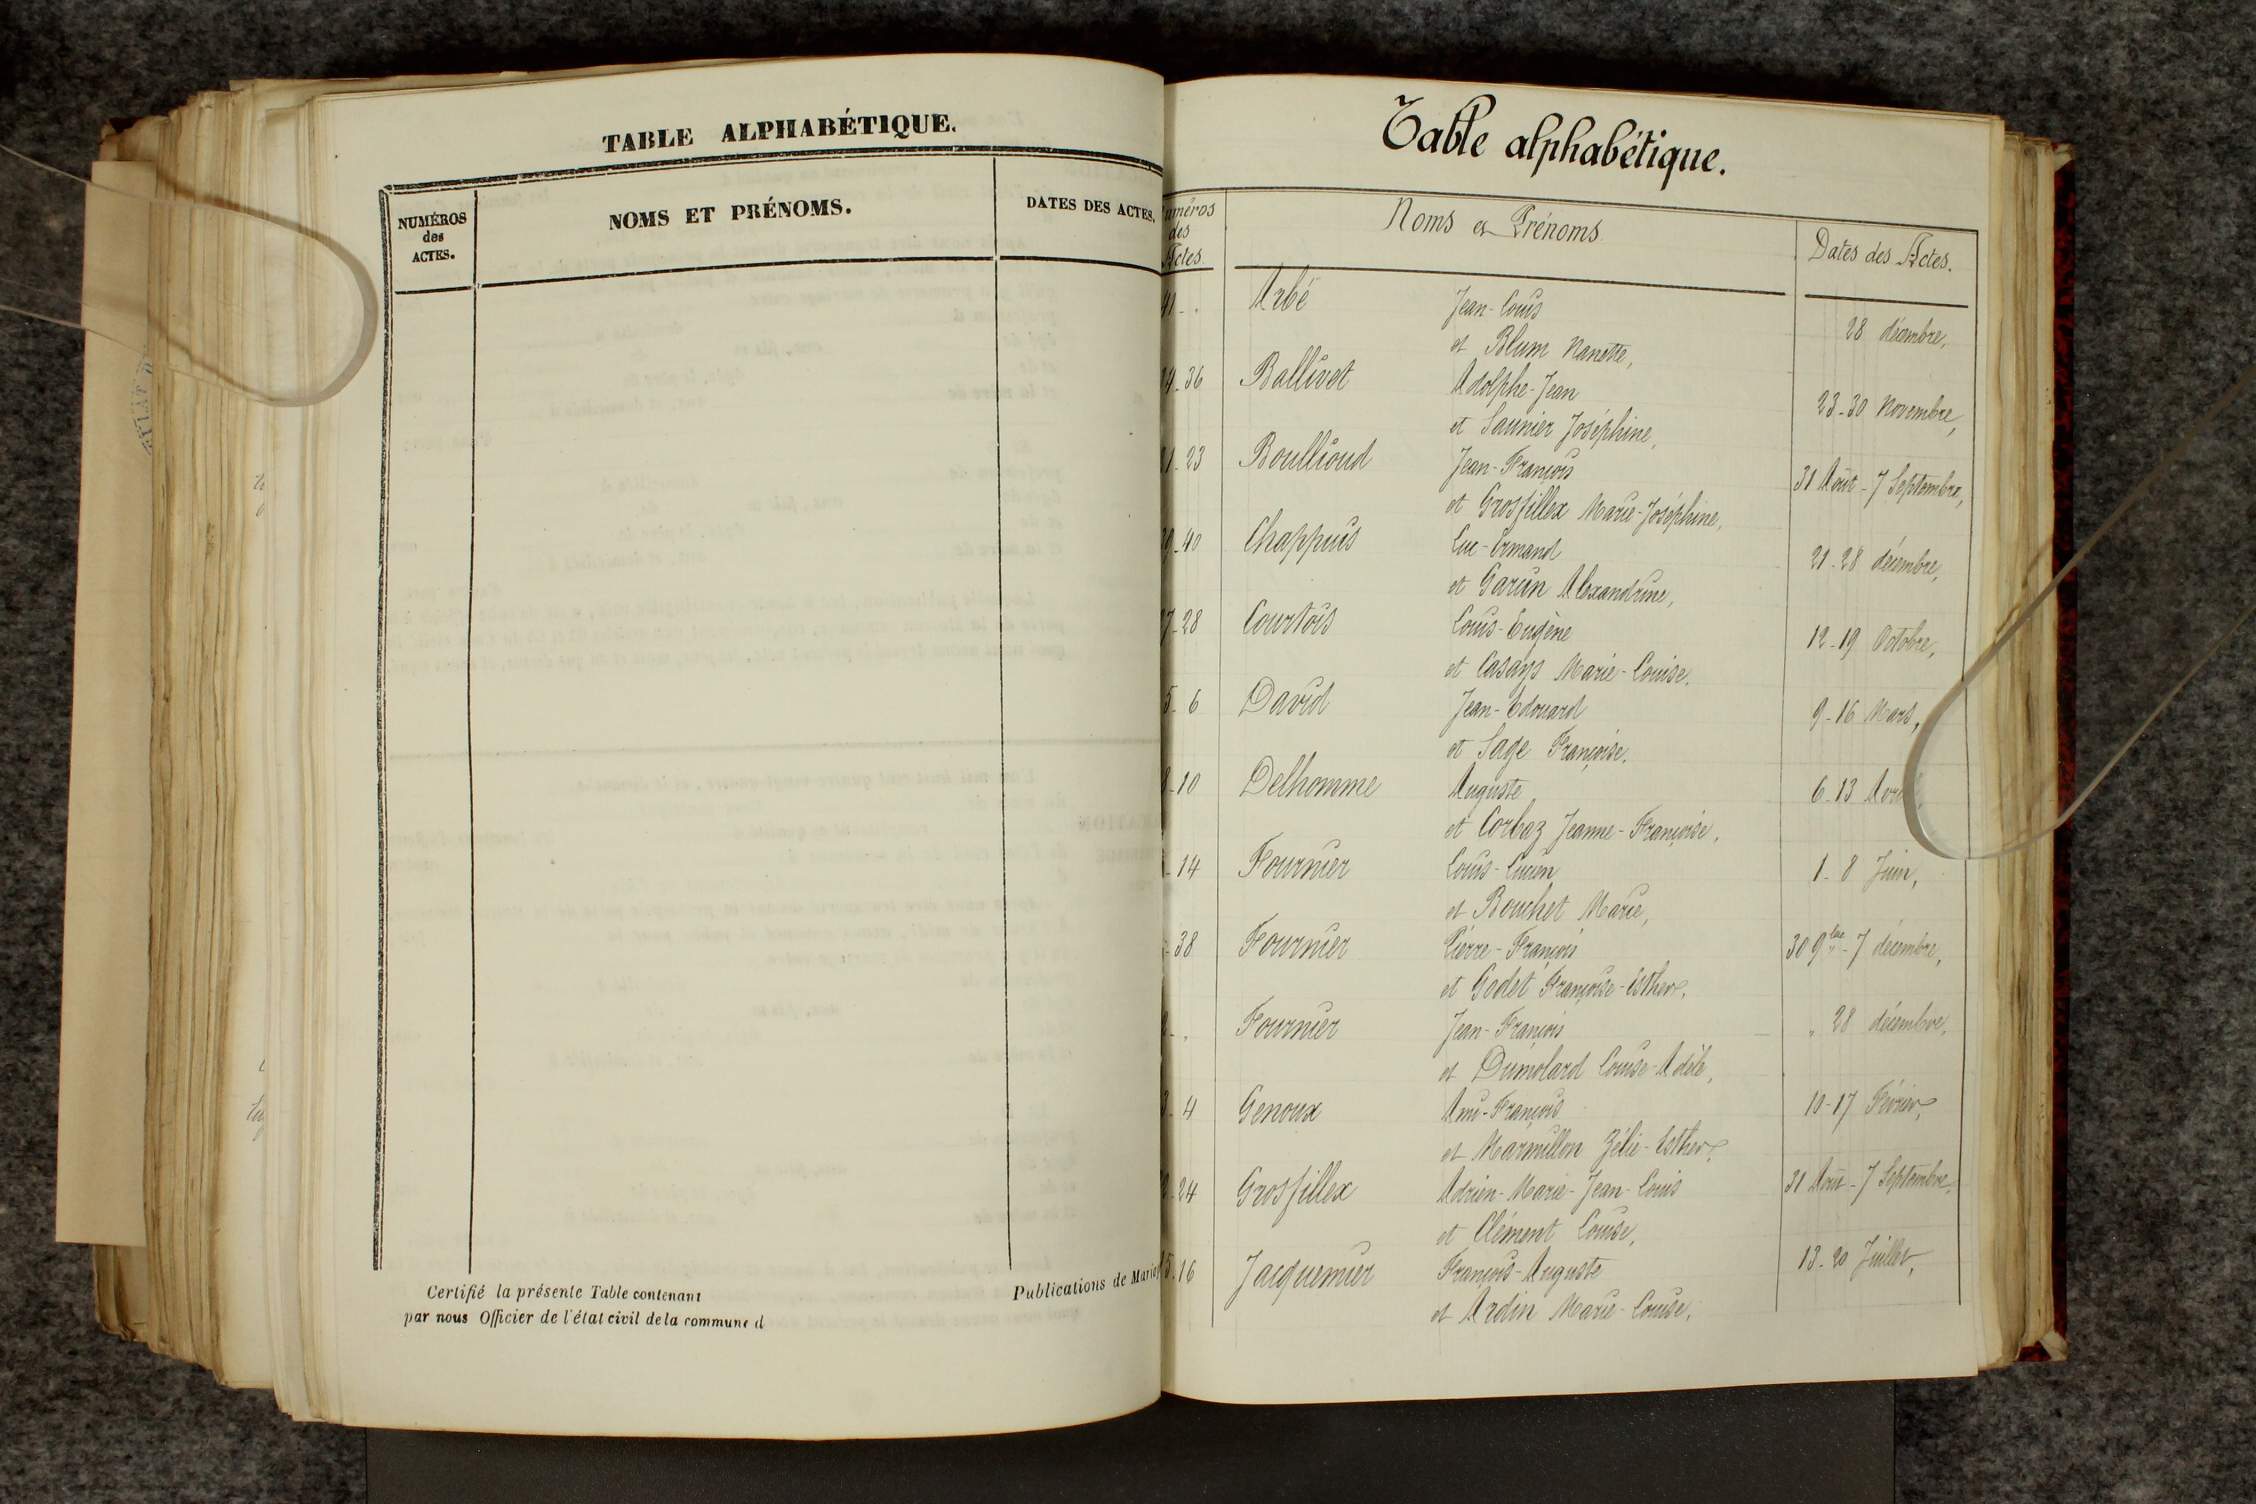 TABLE ALPHABÉTIQUE.
NUMÉROS
des
ACTES.
NOMS ET PRÉNOMS.
DATES DES ACTES.
Certifié la présente Table contenant
par nous Officier de l'état civil de la commune d
Publications de Maria
Table alphabétique.
uméros
des
Actes
Noms et Prénoms
Dates des Actes.
41 - Arbé Jean-Louis 28 décembre,
et Blum Nanette,
4-36 Ballivet Adolphe-Jean 23-30 Novembre,
et Saunier Joséphine,
1-23 Boullioud Jean-François 31 Août-7 Septembre,
et Grosfillex Marie-Joséphine,
9-40 Chappuis Luc-Armand 21-28 décembre,
et Garin Alexandrine,
7-28 Courtois Louis-Eugène 12-19 Octobre,
et Casans Marie-Louise.
5-6 David Jean-Edouard 9-16 Mars,
et Sage Françoise.
8-10 Delhomme Auguste 6-13
et Corbaz Jeanne-Françoise.
-14 Fournier Louis-Lucien 1-8 Juin,
et Bouchet Marie,
-38 Fournier Pierre-François 30 9bre-7 décembre,
et Godet Françoise-Esther.
Fournier Jean-François " 28 décembre,
et Dumolard Louise-Adèle,
3-4 Genoux Ami-François 10-17 Février,
et Marmillon Zélie-Esther.
-24 Grosfillex Adrien-Marie-Jean-Louis 31 Août-7 Septembre.
et Clément Louise.
15-16 Jacquemier François-Auguste 13-20 Juillet,
et Ardin Marie-Louise.